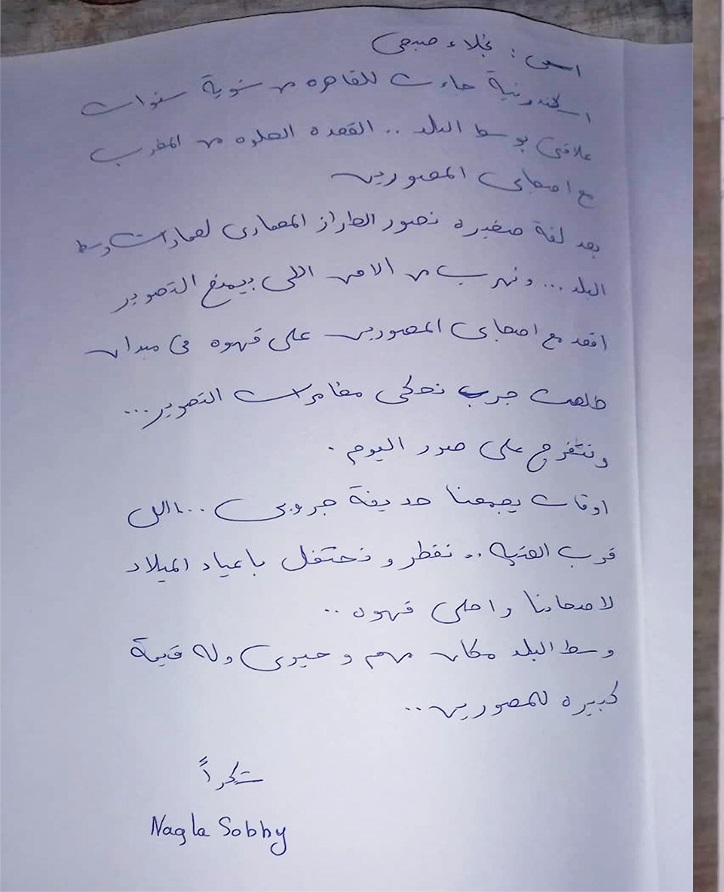 اسمى : نجلاء صبحى
اسكندرنية جاءت للقاهره من شوية سنوات
علاقتى بوسط البلد .. القعده الحلوه من المغرب
مع اصحابى المصورين
بعد لفة صغيره نصور الطراز المعمارى لعمارات وسط
البلد ... ونهرب من الامن اللى بيمنع التصوير
اقعد مع اصحابى المصورين على قهوه فى ميدان
طلعت حرب نحكى مغامرات التصوير ...
ونتفرج على صور اليوم .
اوقات يجمعنا حديقة جروبى ... اللى
قرب العتبه .. نفطر و نحتفل باعياد الميلاد
لاصحابنا واحلى قهوه ..
وسط البلد مكان مهم و حيوى وله قيمة
كبيره للمصورين ..
شكراً
Nagla Sobhy